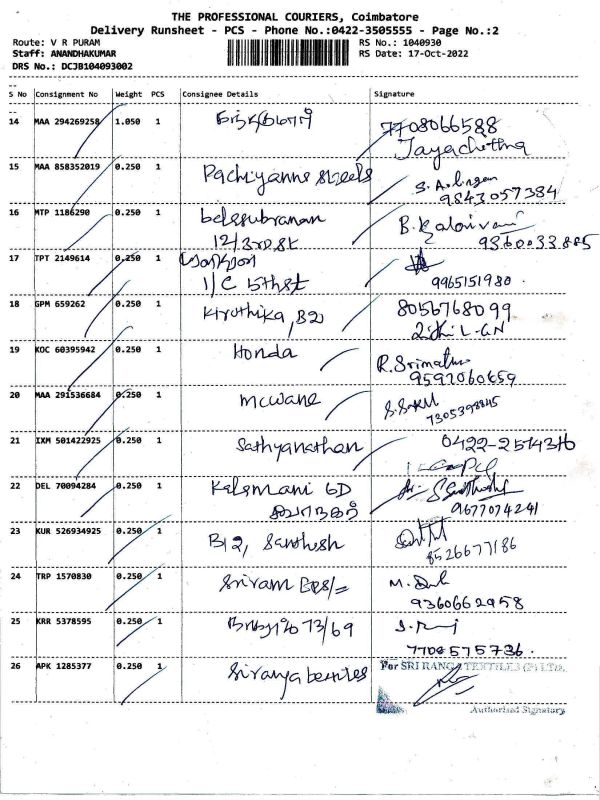 THE PROFESSIONAL COURIERS, Coimbatore
Delivery Runsheet - PCS - Phone No.:0422-3505555 - Page No.:2
Route: V R PURAM
Staff: ANANDHAKUMAR
DRS No.: DCJB104093002
RS No.: 1040930
RS Date: 17-Oct-2022
S No Consignment No Weight PCS Consignee Details Signature
14 MAA 294269258 1.050 1 7708066588
Jayachithra
15 MAA 858352019 0.250 1 Pachiyanna steels
9843057384
16 MTP 1186290 0.250 1 balasubraman B. Kalaivani
12/3rd st 9360033885
17 TPT 2149614 0.250 1
1/C 5th st 9965151980
18 GPM 659262 0.250 1 Kiruthika, B2 8056768099
19 KOC 60395942 0.250 1 Honda R. Srimathi
9592060659
20 MAA 291536684 0.250 1 mcwane
7305398845
21 IXM 501422925 0.250 1 Sathyanathan 0422-2574316
22 DEL 70094284 0.250 1 Kalamani GD
9677074241
23 KUR 526934925 0.250 1 B12, Santhosh
8526677186
24 TRP 1570830 0.250 1 Sriram
9360662958
25 KRR 5378595 0.250 1 73/69
7708575736
26 APK 1285377 0.250 1 Sriranga textiles For SRI RANGA TEXTILES (P) LTD.
Authorised Signatory